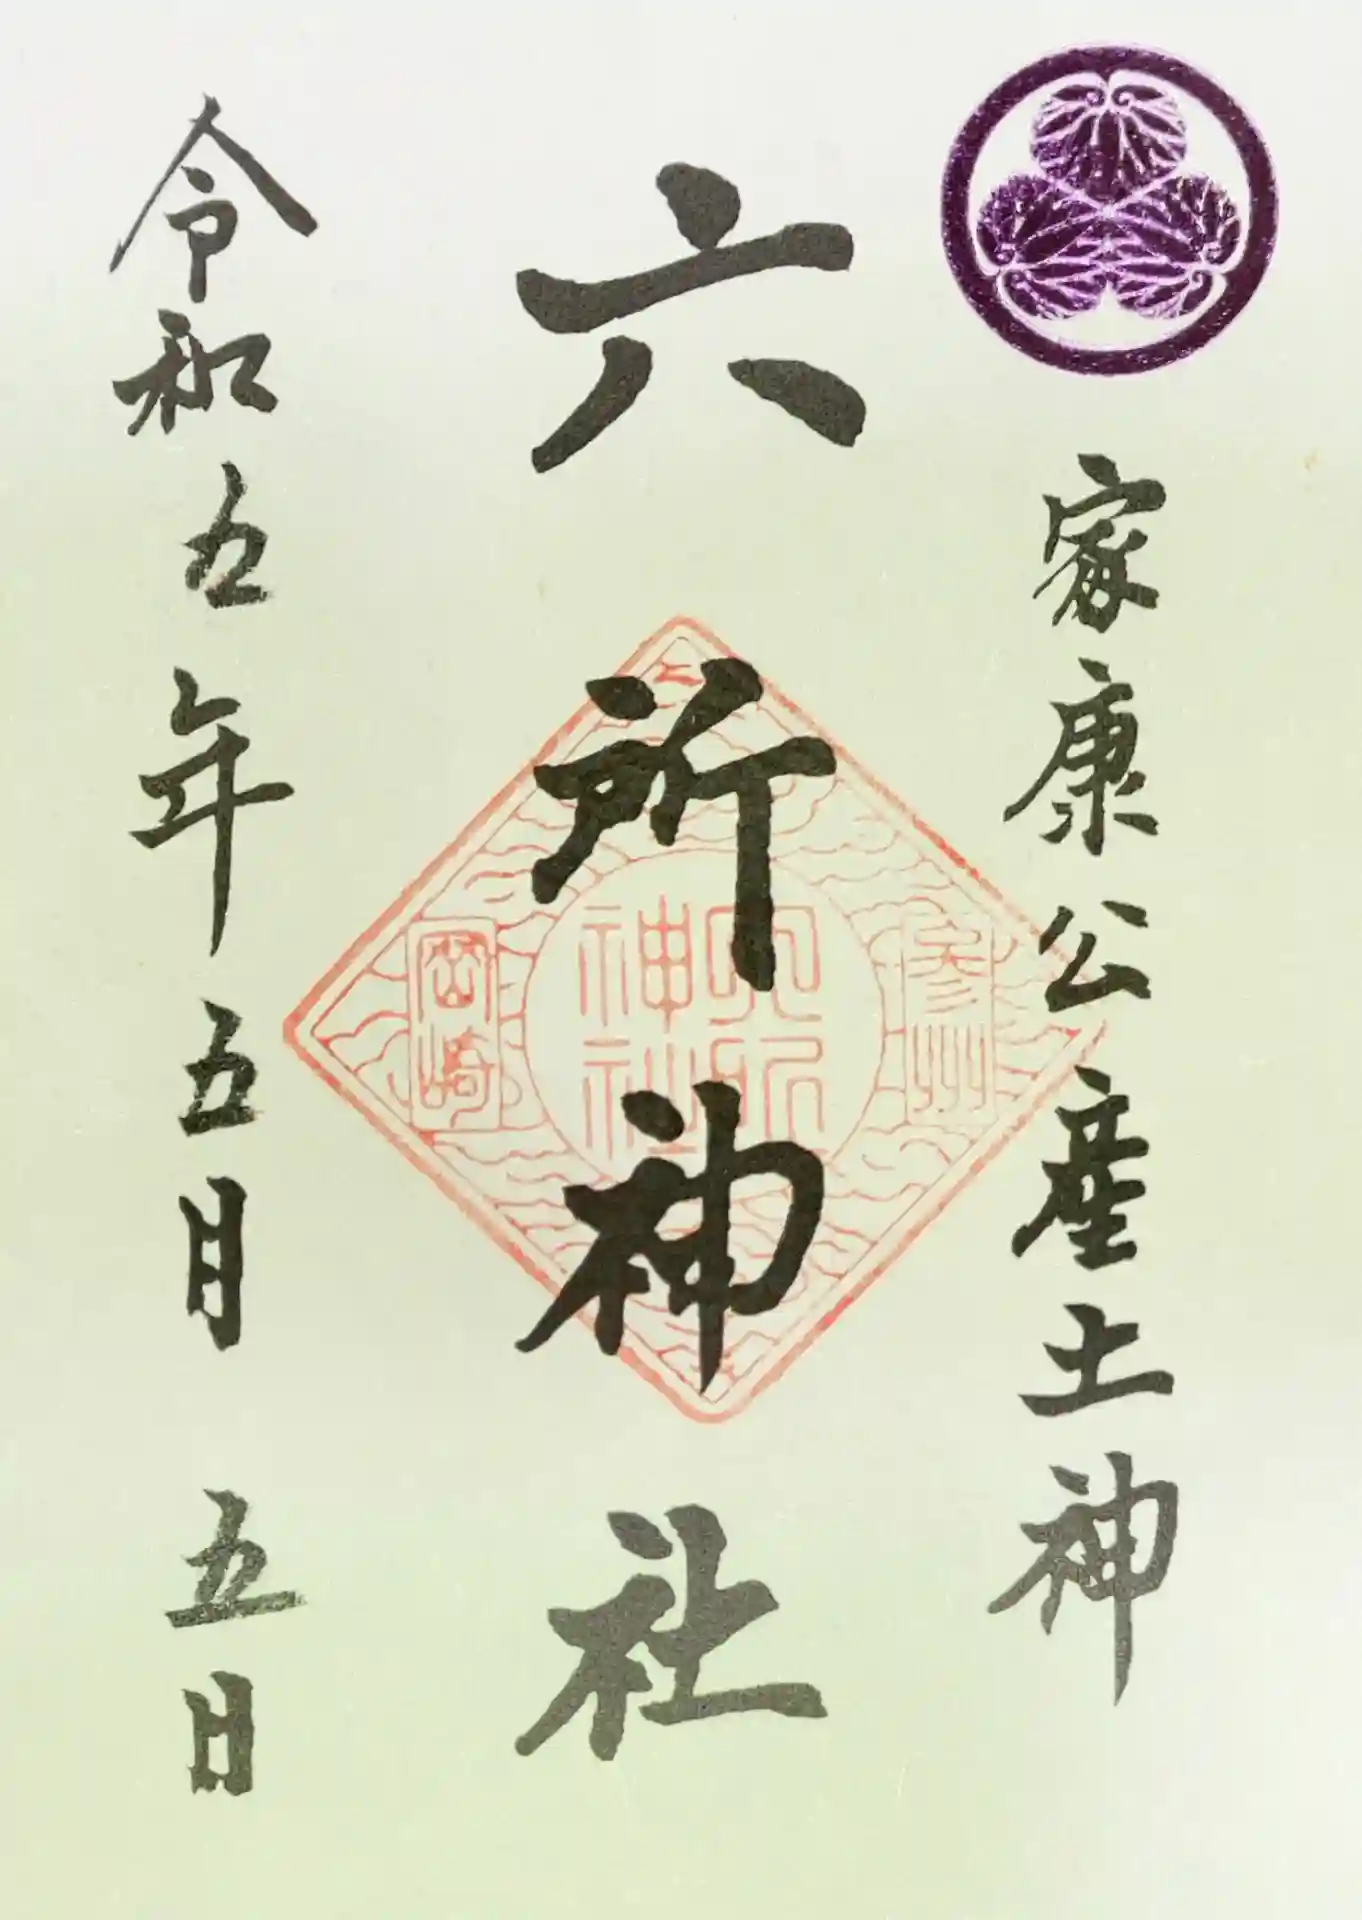 家康公産土神
六所神社
参州
六所
神社
岡崎
令和五年五月五日